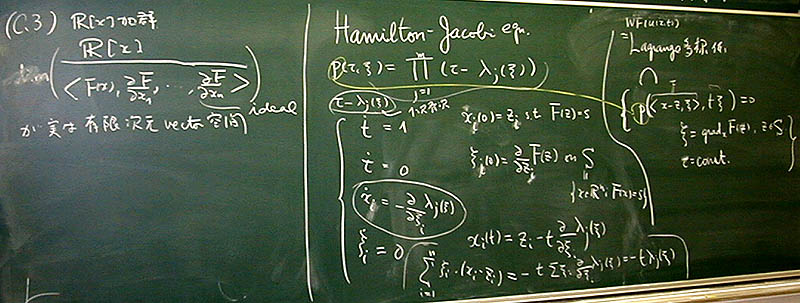 (C.3) ℝ[x] 加群
dim ( ℝ[x] / < F(x), ∂F/∂x₁, ⋯, ∂F/∂xₙ > )
ideal
が実は有限次元 vector 空間
Hamilton-Jacobi eqn.
p(τ, ξ) = ∏_{j=1}^{m} (τ - λ_j(ξ))
τ - λ_j(ξ)
ṫ = 1
τ̇ = 0
ẋ_i = -∂/∂ξ_i λ_j(ξ)
ξ̇_i = 0
x_i(0) = z_i s.t. F(z) = s
ξ_i(0) = ∂/∂z_i F(z) on S
{x∈ℝⁿ; F(x)=s}
x_i(t) = z_i - t ∂/∂ξ_i λ_j(ξ)
∑_{i=1}^{n} ξ_i·(x_i - z_i) = -t ∑ ξ_i ∂/∂ξ_i λ_j(ξ) = -t λ_j(ξ)
WF(u(x,t))
= Lagrange 多様体
∩
{ p(<x-z, ξ>, tξ) = 0
ξ = grad_z F(z), z∈S
τ = const. }